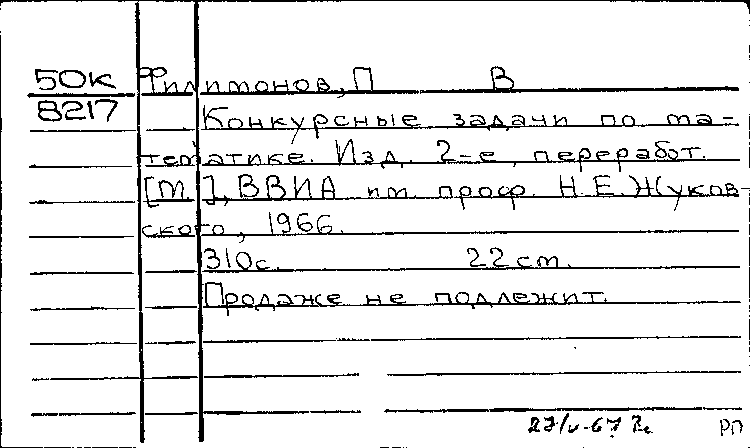 50К Филимонов, П В
8217 Конкурсные задачи по ма-
тематике. Изд. 2-е, переработ.
[М.], ВВИА им. проф. Н.Е.Жуков-
ского, 1966.
310с. 22 см.
Продаже не подлежит.
27/V-67 г. РП